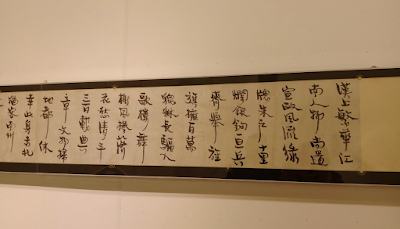 漢上繁華江
南人物尚遺
宣政風流綠
牕朱戶十里
爛銀鉤一旦刀兵
齊舉旌
旗擁百萬
貔貅長驅入
歌樓舞
榭風捲落
花愁清平
三百載典
章文物掃
地都休
幸此身未北
猶客南州